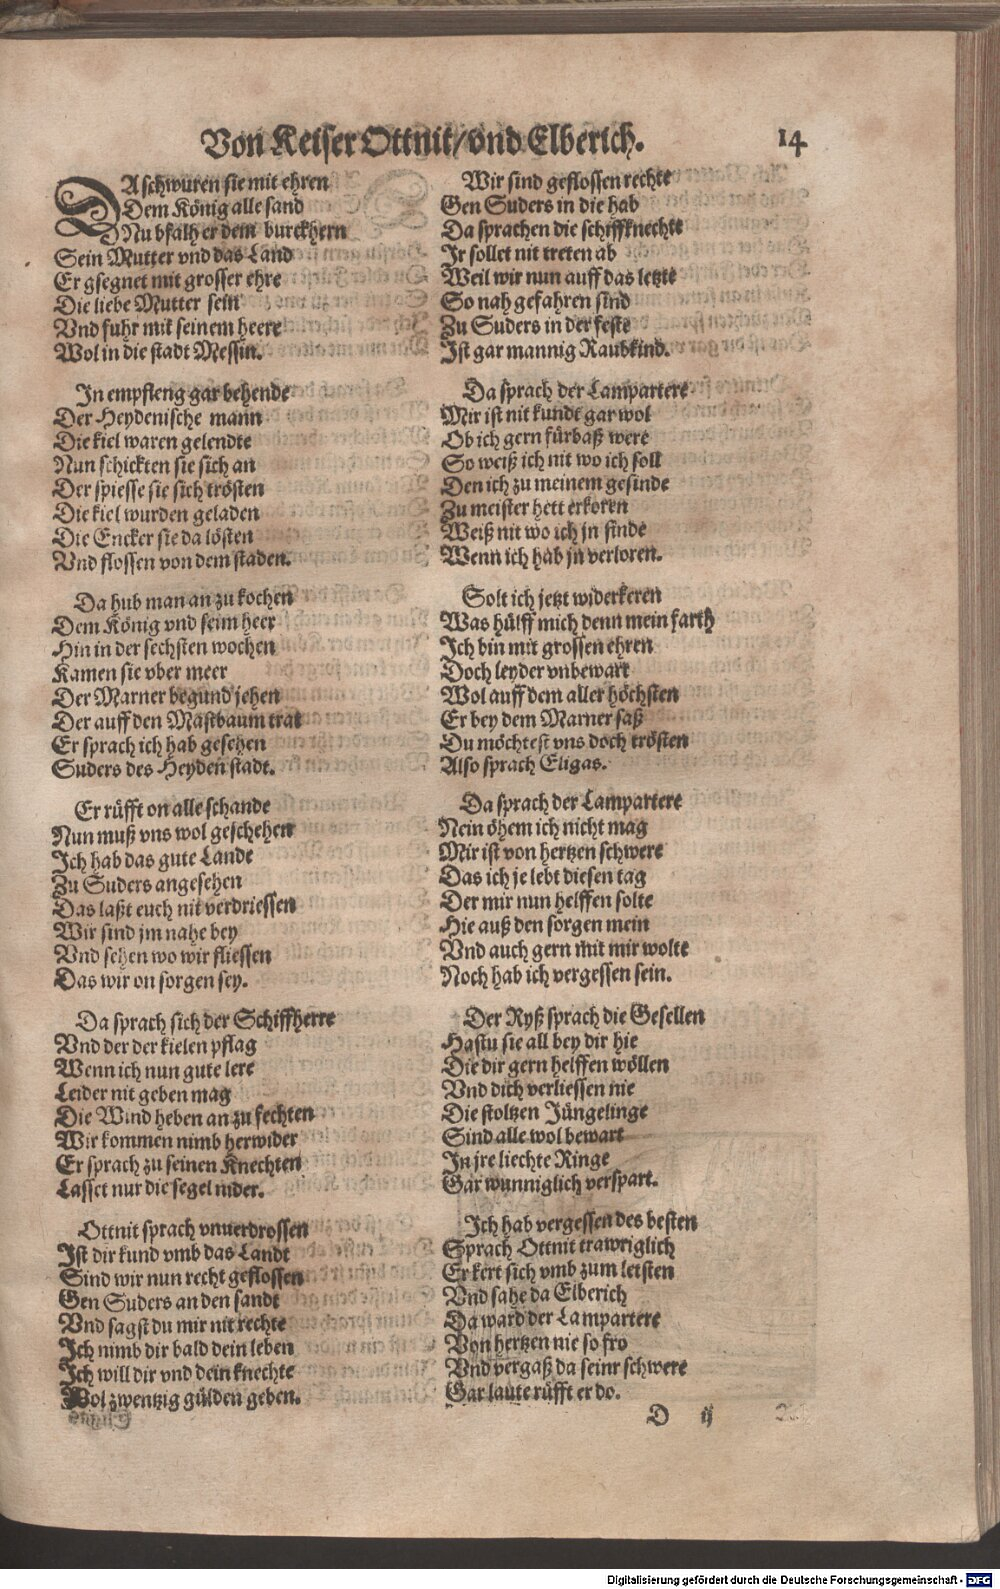 Von Keiser Ottnit/ vnd Elberich. 14
DA schwuren sie mit ehren
Dem König alle sand
Nu bfalh er dem burckhern
Sein Mutter vnd das Land
Er gsegnet mit grosser ehre
Die liebe Mutter sein
Vnd fuhr mit seinem heere
Wol in die stadt Messin.
In empfieng gar behende
Der Heydenische mann
Die kiel waren gelendte
Nun schickten sie sich an
Der spiesse sie sich trösten
Die kiel wurden geladen
Die Encker sie da lösten
Vnd flossen von dem staden.
Da hub man an zu kochen
Dem König vnd seim heer
Hin in der sechsten wochen
Kamen sie vber meer
Der Marner begund jehen
Der auff den Mastbaum trat
Er sprach ich hab gesehen
Suders des Heyden stadt.
Er rüfft on alle schande
Nun muß vns wol geschehen
Ich hab das gute Lande
Zu Suders angesehen
Das laßt euch nit verdriessen
Wir sind jm nahe bey
Vnd sehen wo wir fliessen
Das wir on sorgen sey.
Da sprach sich der Schiffherre
Vnd der der kielen pflag
Wenn ich nun gute lere
Leider nit geben mag
Die Wind heben an zu fechten
Wir kommen nimb herwider
Er sprach zu seinen Knechten
Lasset nur die segel nider.
Ottnit sprach vnuerdrossen
Ist dir kund vmb das Landt
Sind wir nun recht geflossen
Gen Suders an den sandt
Vnd sagst du mir nit rechte
Ich nimb dir bald dein leben
Ich will dir vnd dein knechte
Wol zwentzig gülden geben.
Wir sind geflossen rechte
Gen Suders in die hab
Da sprachen die schiffknechte
Ir sollet nit treten ab
Weil wir nun auff das letzte
So nah gefahren sind
Zu Suders in der feste
Ist gar mannig Raubkind.
Da sprach der Lampartere
Mir ist nit kundt gar wol
Ob ich gern fürbaß were
So weiß ich nit wo ich soll
Den ich zu meinem gesinde
Zu meister hett erkoren
Weiß nit wo ich jn finde
Wenn ich hab jn verloren.
Solt ich jetzt widerkeren
Was hülff mich denn mein farth
Ich bin mit grossen ehren
Doch leyder vnbewart
Wol auff dem aller höchsten
Er bey dem Marner saß
Du möchtest vns doch trösten
Also sprach Eligas.
Da sprach der Lampartere
Nein öhem ich nicht mag
Mir ist von hertzen schwere
Das ich je lebt diesen tag
Der mir nun helffen solte
Hie auß den sorgen mein
Vnd auch gern mit mir wolte
Noch hab ich vergessen sein.
Der Ryß sprach die Gesellen
Hastu sie all bey dir hie
Die dir gern helffen wöllen
Vnd dich verliessen nie
Die stoltzen Jüngelinge
Sind alle wol bewart
In jre liechte Ringe
Gar wunniglich verspart.
Ich hab vergessen des besten
Sprach Ottnit trawriglich
Er kert sich vmb zum letsten
Vnd sahe da Elberich
Da ward der Lampartere
Von hertzen nie so fro
Vnd vergaß da seinr schwere
Gar laute rüfft er do.
D ij
Digitalisierung gefördert durch die Deutsche Forschungsgemeinschaft - DFG